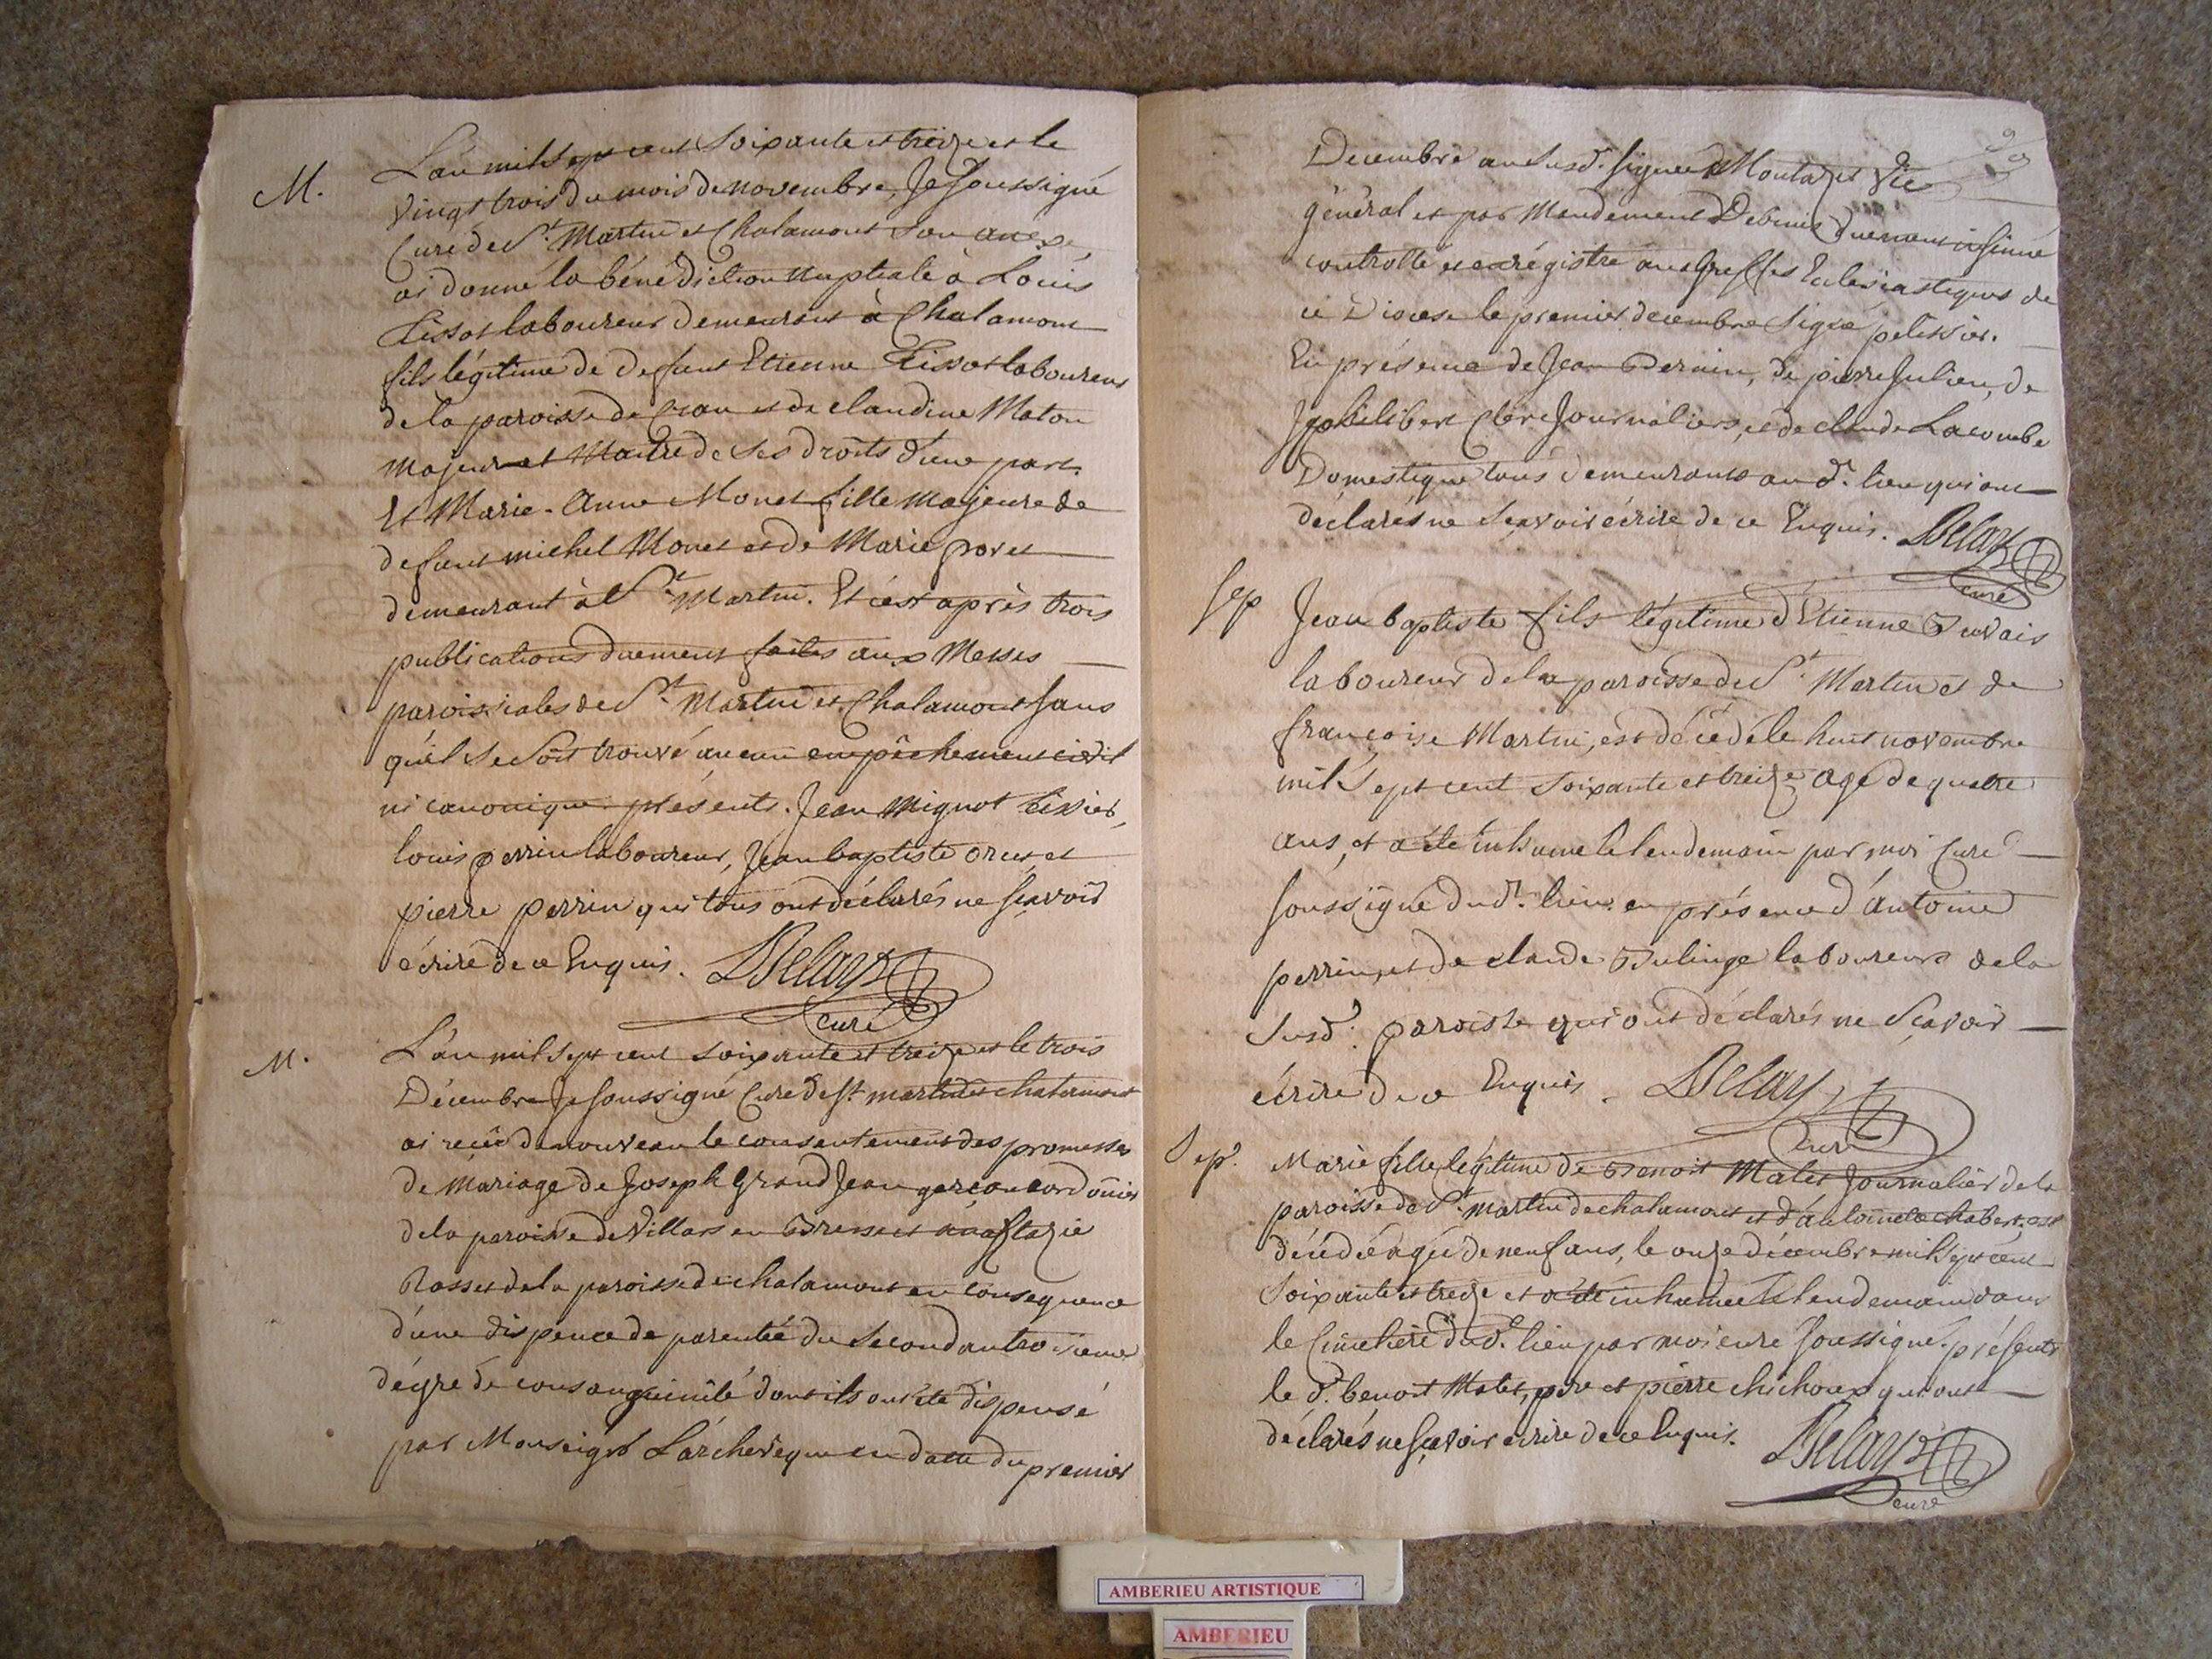 M.
L'an mil sept cent soixante et treize et le
vingt trois du mois de novembre, Je soussigné
Curé de St. Martin et Chalamont son anexe
ai donné la bénédiction nuptiale à Louis
Tissot laboureur demeurant à Chalamont
fils légitime de defunt Etienne Tissot laboureur
de la paroisse de Cran et de claudine Maton
majeur et Maitre de ses droits d'une part.
Et Marie-Anne Monet fille majeure de
defunt michel Monet et de Marie poret
demeurant à St. Martin. Et c'est après trois
publications duement faites aux Messes
paroissiales de St. Martin et Chalamont sans
qu'il se soit trouvé aucun empêchement civil
ni canonique présents. Jean Mignot tissier,
louis perrin laboureur, Jean baptiste et
pierre perrin qui tous ont déclarés ne sçavoir
écrire de ce Enquis. Delay
curé
M.
L'an mil sept cent soixante et treize et le trois
Décembre Je soussigné Curé de St. martin et chalamont
ai reçû de nouveau le consentement des promesses
de mariage de Joseph Grand Jean garçon cordonier
de la paroisse de Villars en Bresse et anastazie
Rosset de la paroisse de chalamont en consequence
d'une dispence de parentée du second au troisieme
dégré de consanguinité dont ils ont été dispensé
par Monseigr L'archevêque en datte du premier
Decembre an susd. signée Montazet Vic
général et par Mandement duement insinué
controllé et enrégistré aux Greffes Eclesiastiques de
ce Diocese le premier decembre signé pelissier.
En présence de Jean Bernin, de pierre Julien, de
philibert Clere Journaliers, et de claude Lacombe
Domestique tous demeurants au d. lieu qui ont
déclarés ne sçavoir écrire de ce Enquis. Delay
curé
Sep
Jean baptiste fils légitime d'Etienne
laboureur de la paroisse de St. Martin et de
françoise Martin, est décédé le huit novembre
mil sept cent soixante et treize agé de quatre
ans, et a été inhumé le lendemain par moi Curé
soussigné du d. lieu en présence d'antoine
perrin, et de claude Bulinge laboureurs de la
susd. paroisse qui ont déclarés ne sçavoir
écrire de ce Enquis. Delay
Curé
Sep.
Marie fille légitime de Benoit Matet Journalier de la
paroisse de St. martin de chalamont et d'antoinete chabert, est
décédée agée de neuf ans, le onze décembre mil sept cent
soixante et treize et a été inhumée le lendemain dans
le Cimetiere du d. lieu par moi curé soussigné. présents
le d. benoit Matet, pere et pierre chichoux qui ont
déclarés ne sçavoir écrire de ce Enquis. Delay
curé
AMBERIEU ARTISTIQUE
AMBERIEU